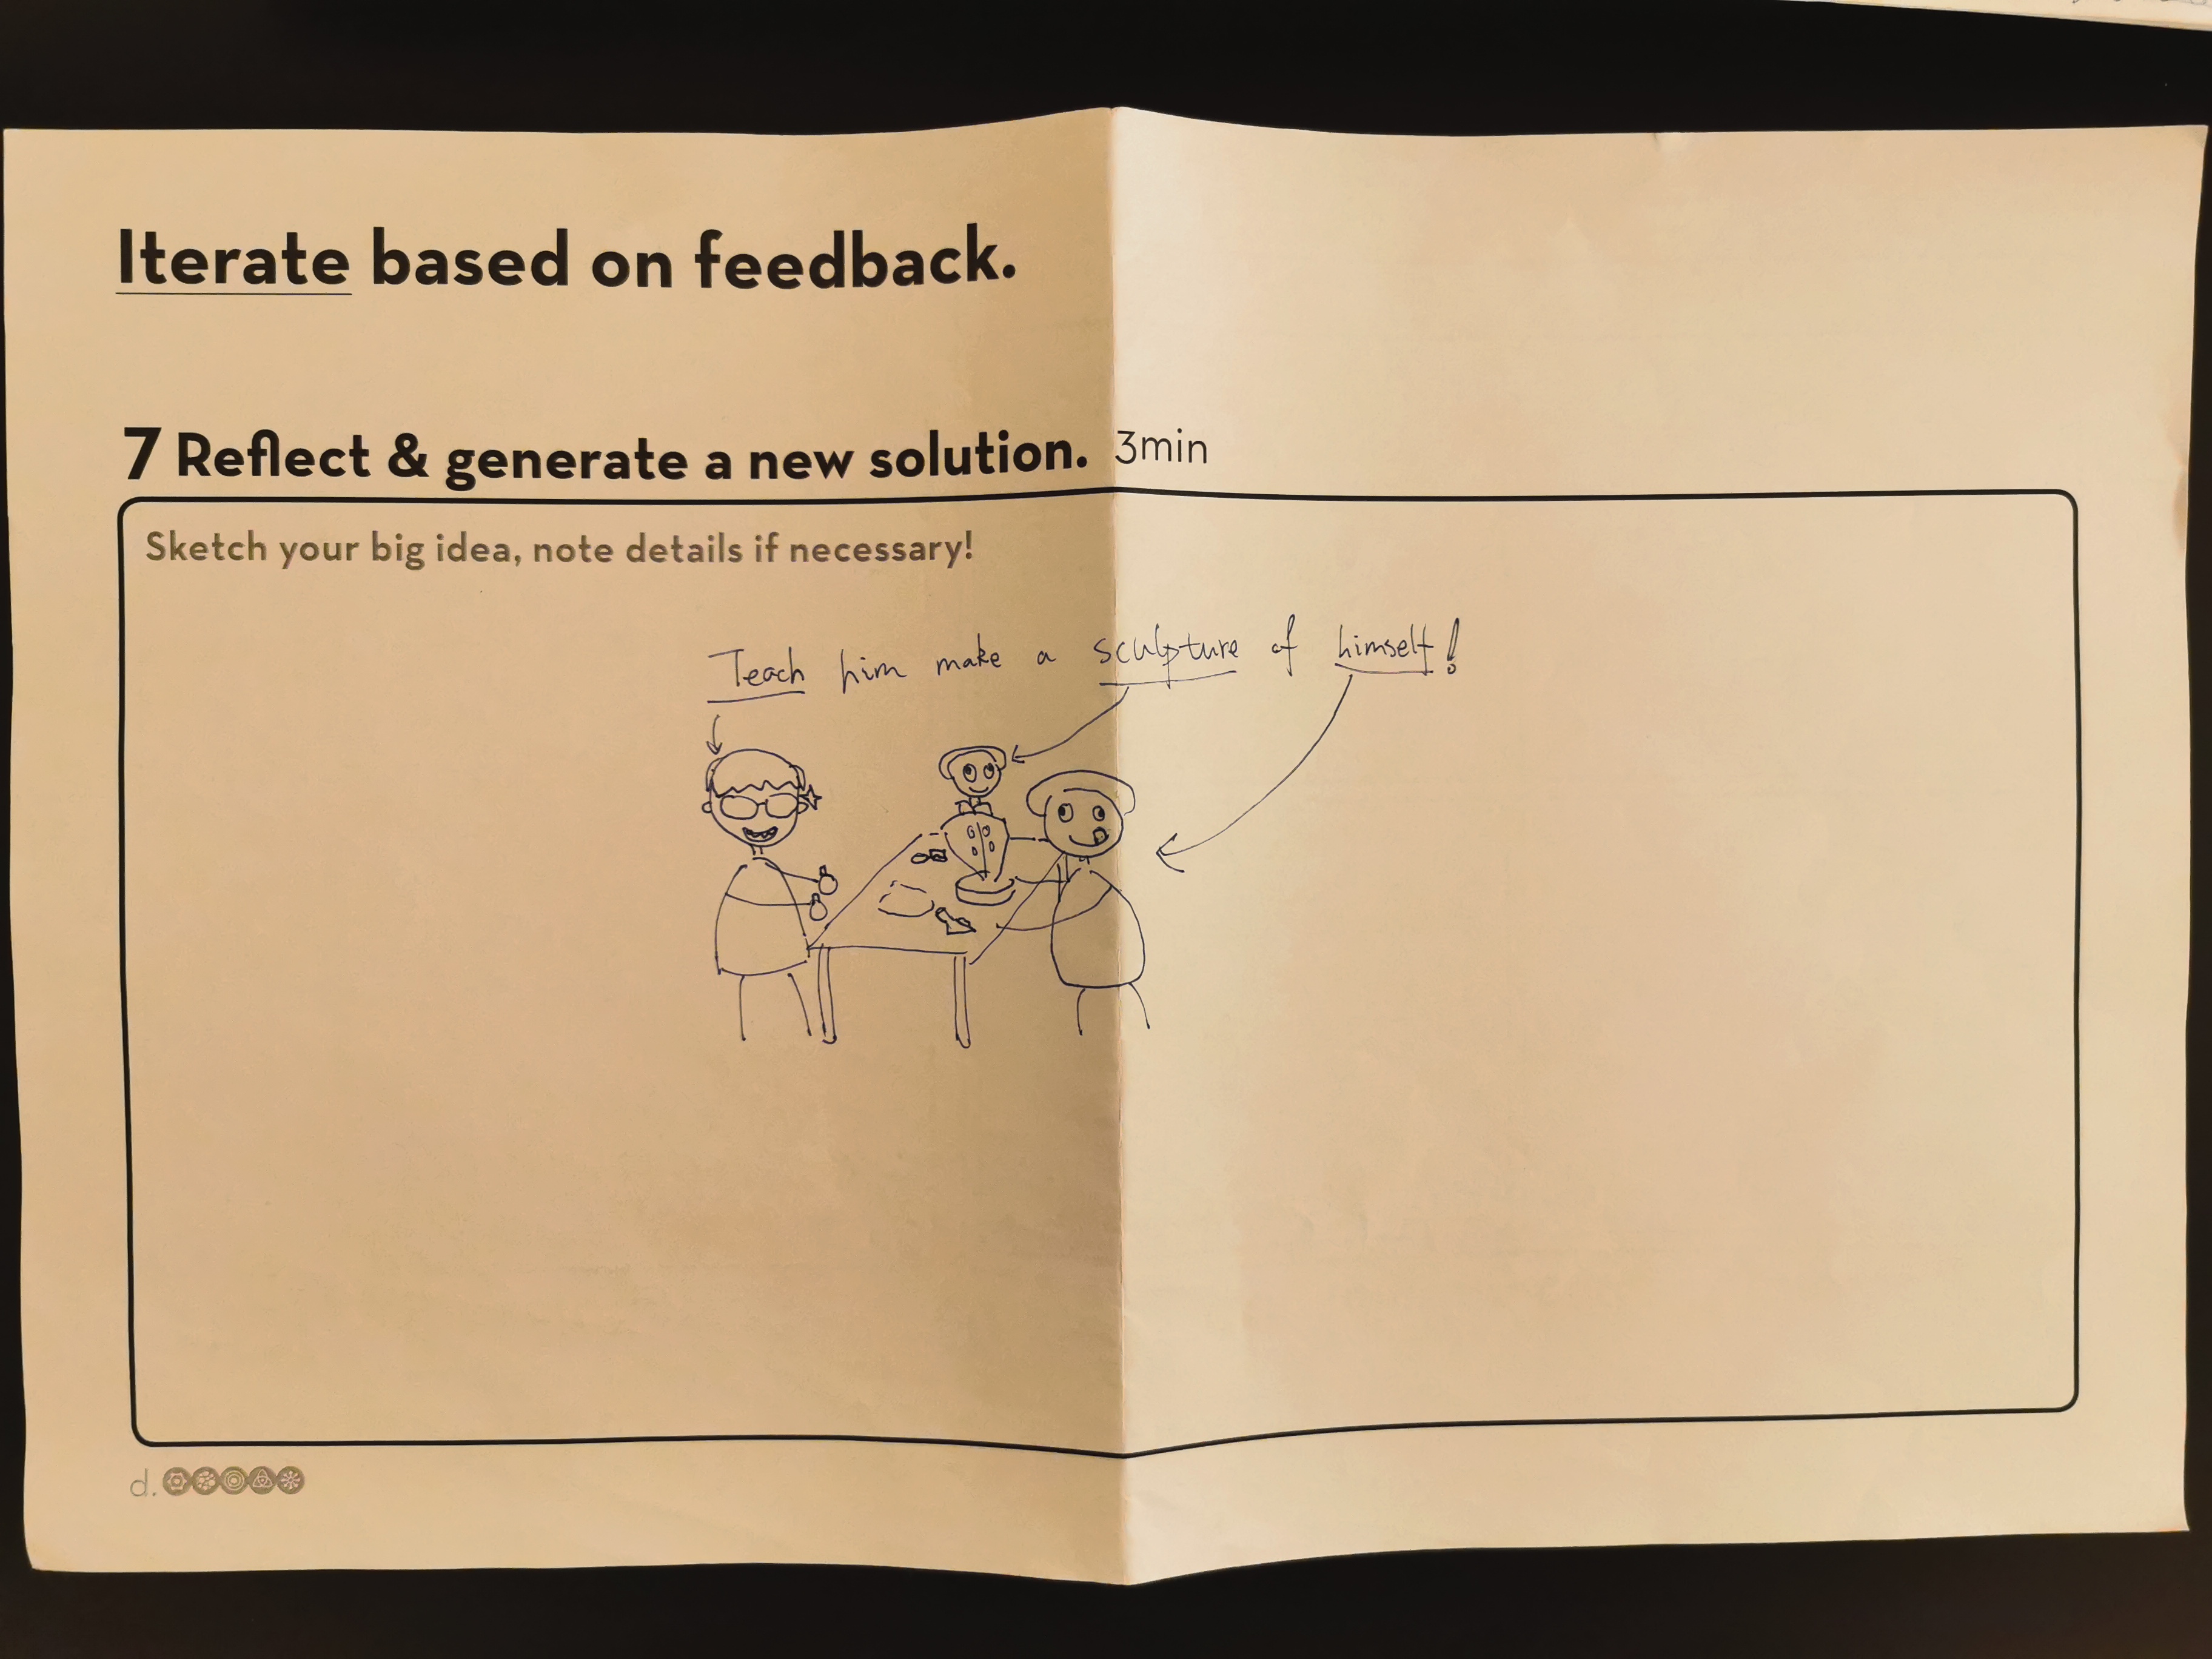 Iterate based on feedback.
7 Reflect & generate a new solution. 3min
Sketch your big idea, note details if necessary!
Teach him make a sculpture of himself!
d.